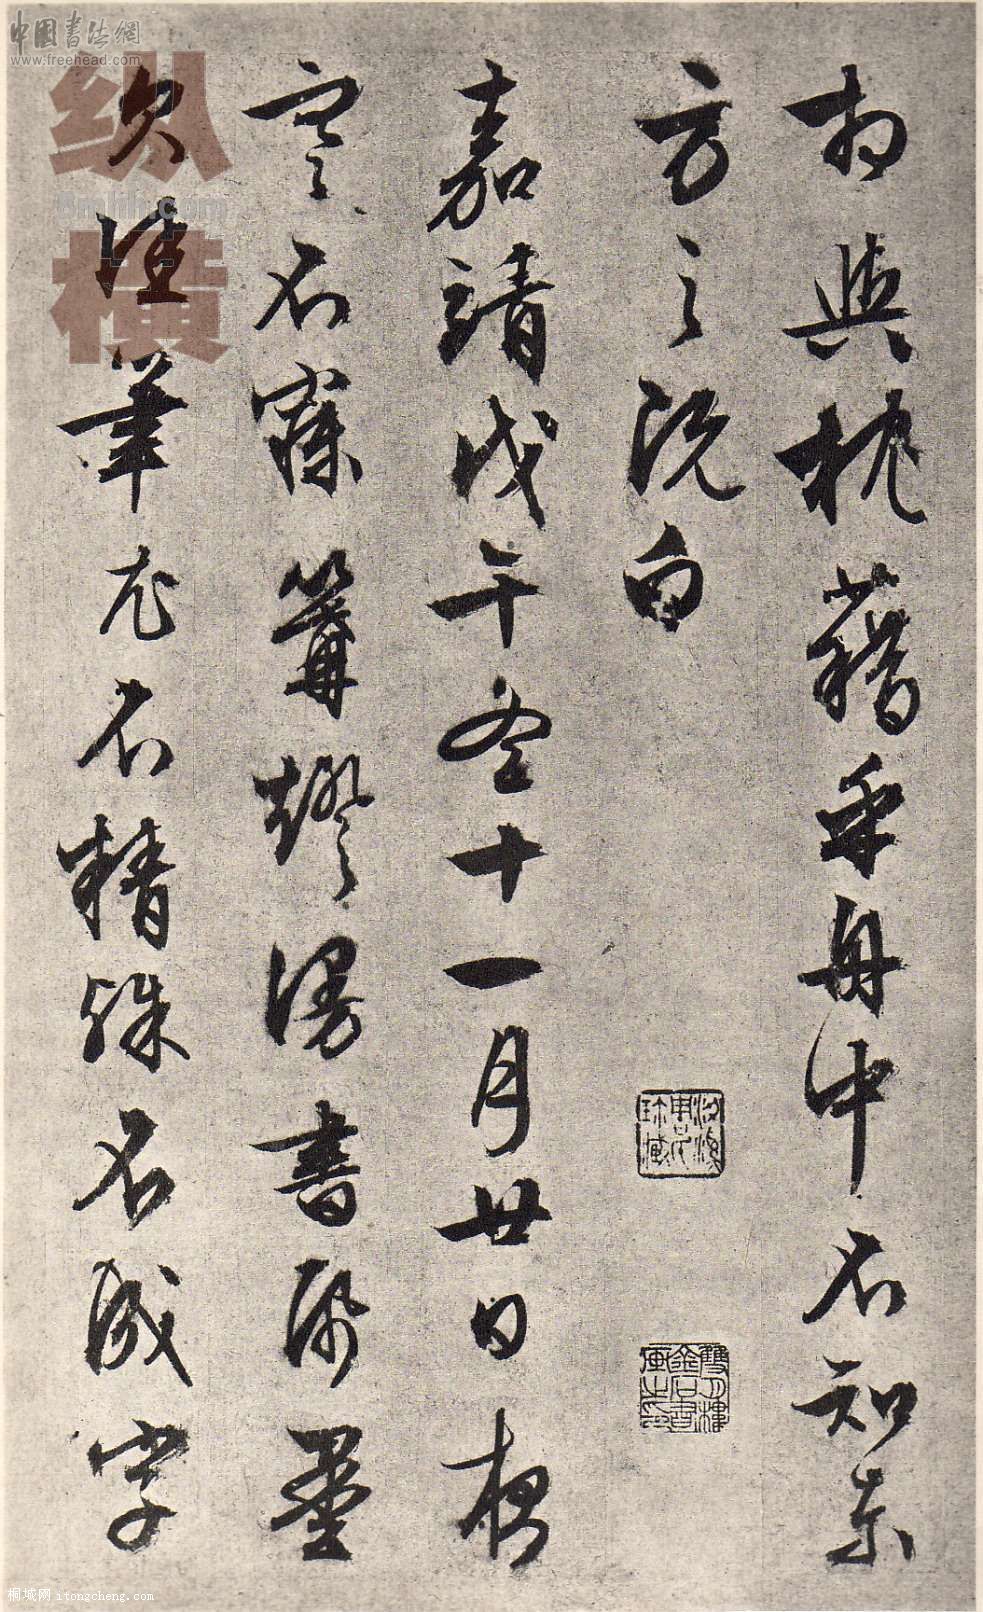 中国書法網
www.freehead.com
纵
横
相與枕藉乎舟中不知東
方之既白
嘉靖戊午冬十一月廿日夜
寒不寐篝燈漫書帋墨
欠佳筆尤不精殊不成字
桐城网 itongcheng.com